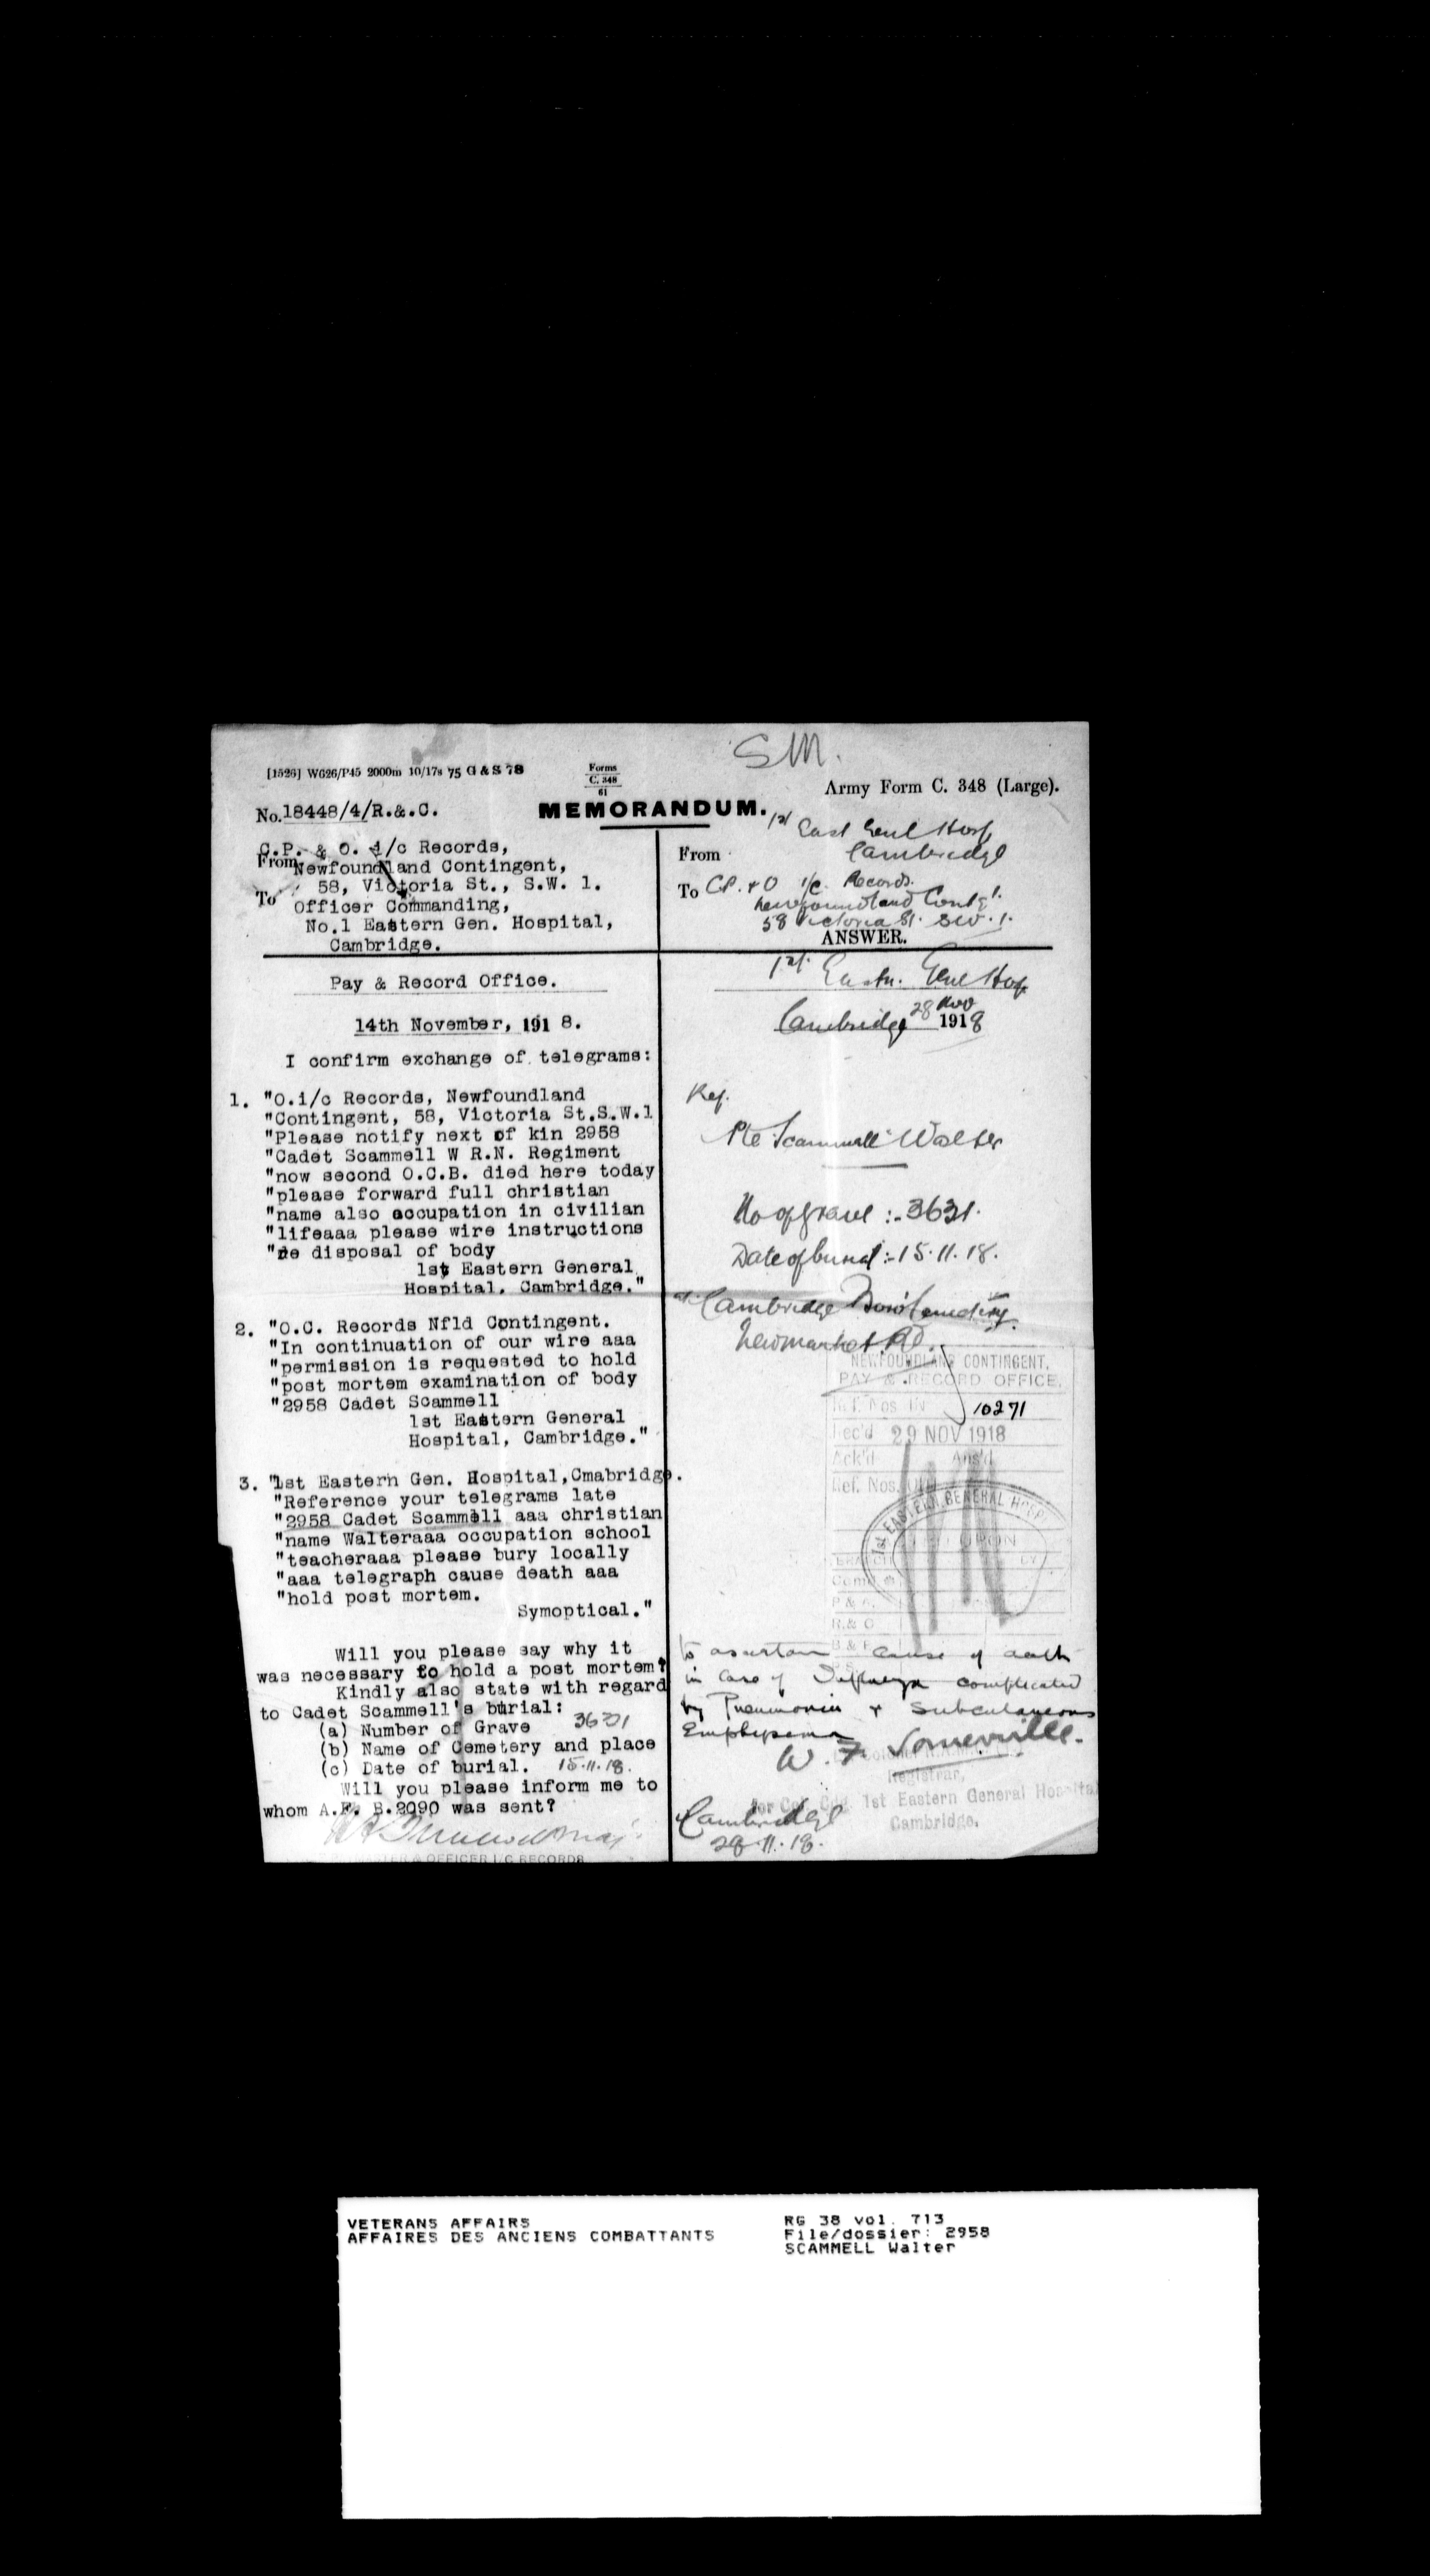 S.M.
[1526] W626/P45 2000m 10/17s 75 G & S 78
Forms
C. 348
61
Army Form C. 348 (Large).
No. 18448/4/R.&.C.
MEMORANDUM.
C.P. & O. i/c Records,
From Newfoundland Contingent,
58, Victoria St., S.W. 1.
To Officer Commanding,
No.1 Eastern Gen. Hospital,
Cambridge.
Pay & Record Office.
14th November, 191 8.
I confirm exchange of telegrams:
1. "O.i/c Records, Newfoundland
"Contingent, 58, Victoria St.S.W.1
"Please notify next of kin 2958
"Cadet Scammell W R.N. Regiment
"now second O.C.B. died here today
"please forward full christian
"name also occupation in civilian
"lifeaaa please wire instructions
"re disposal of body
1st Eastern General
Hospital, Cambridge."
2. "O.C. Records Nfld Contingent.
"In continuation of our wire aaa
"permission is requested to hold
"post mortem examination of body
"2958 Cadet Scammell
1st Eastern General
Hospital, Cambridge."
3. "1st Eastern Gen. Hospital,Cmabridge.
"Reference your telegrams late
"2958 Cadet Scammell aaa christian
"name Walteraaa occupation school
"teacheraaa please bury locally
"aaa telegraph cause death aaa
"hold post mortem.
Symoptical."
Will you please say why it
was necessary to hold a post mortem?
Kindly also state with regard
to Cadet Scammell's burial:
(a) Number of Grave 3631
(b) Name of Cemetery and place
(c) Date of burial. 15.11.18.
Will you please inform me to
whom A.F. B.2090 was sent?
& OFFICER I/C RECORDS
From 1st East Genl Hosp
Cambridge
To C.P. & O i/c. Records.
Newfoundland Contgt.
58 Victoria St. SW.1.
ANSWER.
1st Eastn. Genl Hosp
Cambridge 28 Nov 1918
Ref.
Pte Scammell Walter
No of grave :- 3631.
Date of burial :- 15.11.18.
at Cambridge Boro' Cemetery
Newmarket Rd.
NEWFOUNDLAND CONTINGENT.
PAY & RECORD OFFICE.
Ref. Nos IN 10271
Rec'd 29 NOV 1918
Ack'd Ans'd
Ref. Nos. OUT
1ST EASTERN GENERAL HOSP
P & A.
R.& C
B & F
to ascertain cause of death
in case of Influenza complicated
by Pneumonia & Subcutaneous
Emphysema
W. F. Somerville.
Registrar,
for Col. Cdg. 1st Eastern General Hospital
Cambridge.
Cambridge
28.11.18.
VETERANS AFFAIRS
AFFAIRES DES ANCIENS COMBATTANTS
RG 38 vol. 713
File/dossier: 2958
SCAMMELL Walter